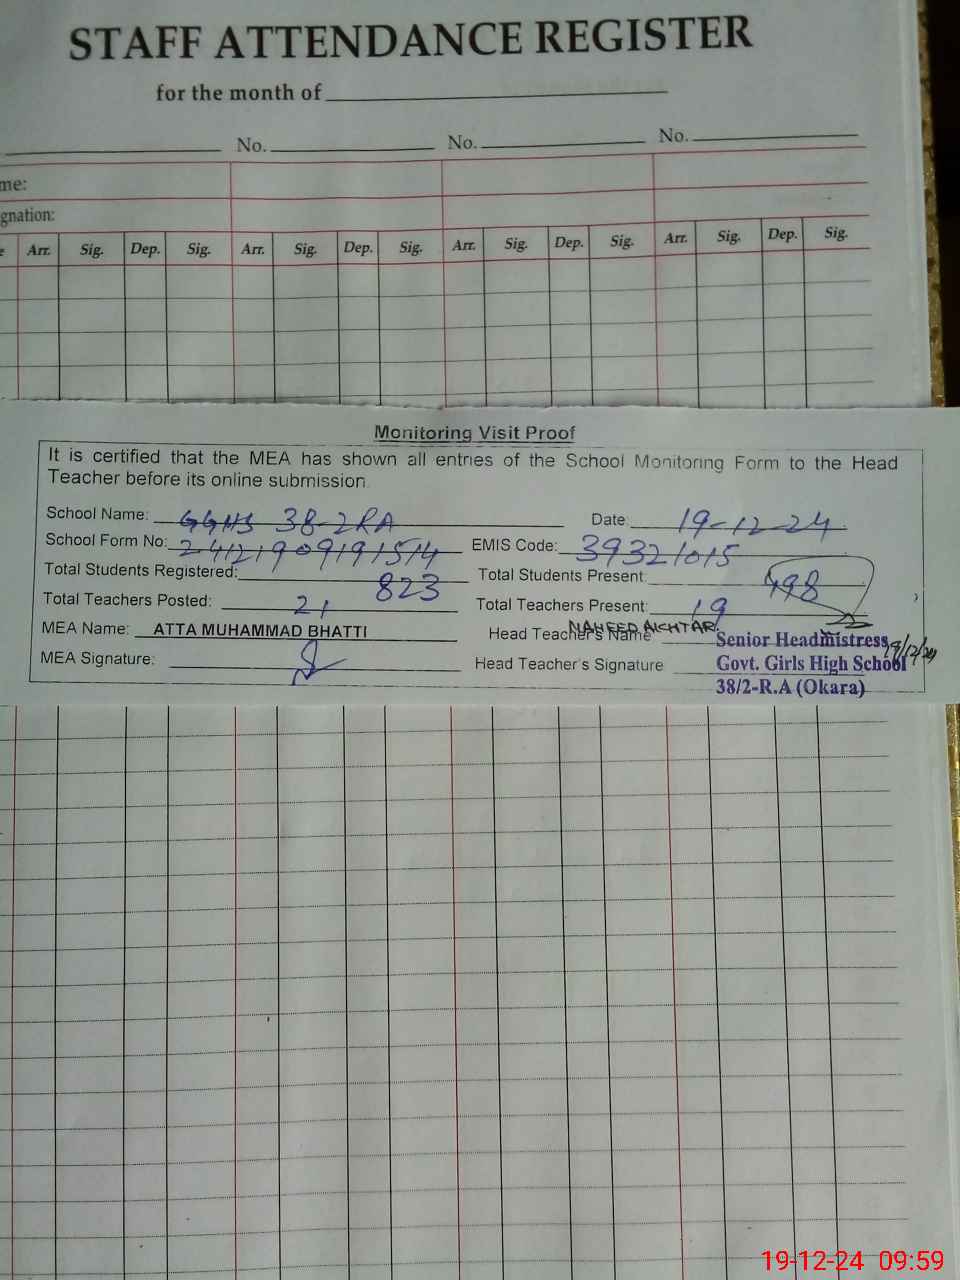 STAFF ATTENDANCE REGISTER
for the month of
No. No. No.
me:
gnation:
e Arr. Sig. Dep. Sig. Arr. Sig. Dep. Sig. Arr. Sig. Dep. Sig. Arr. Sig. Dep. Sig.
Monitoring Visit Proof
It is certified that the MEA has shown all entries of the School Monitoring Form to the Head
Teacher before its online submission.
School Name: GGHS 38-2RA Date: 19-12-24
School Form No: EMIS Code: 39321015
Total Students Registered: 823 Total Students Present 498
Total Teachers Posted: 21 Total Teachers Present: 19
MEA Name: ATTA MUHAMMAD BHATTI Head Teacher's Name NAHEED AKHTAR
Senior Headmistress
MEA Signature: Head Teacher's Signature Govt. Girls High School 19/12/24
38/2-R.A (Okara)
19-12-24 09:59